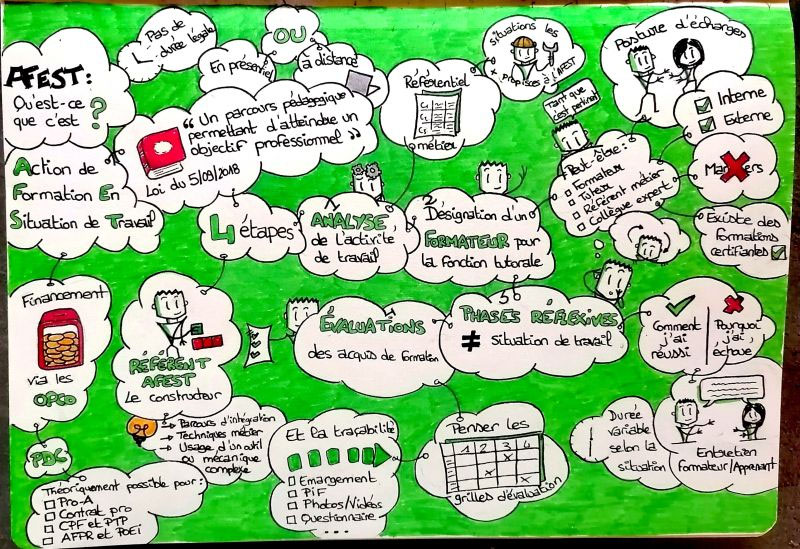 AFEST :
Qu'est-ce
que c'est ?
Action de
Formation En
Situation de Travail
Pas de
durée légale
En présentiel
OU
à distance
" Un parcours pédagogique
permettant d'atteindre un
objectif professionnel "
Loi du 5/09/2018
Référentiel
métier
Situations les
+ propices à l'AFEST
Posture d'échanges
Tant que
c'est pertinent
Interne
Externe
Peut-être :
Formateur
Tuteur
Référent métier
Collègue expert
Existe des
formations
certifiantes
4 étapes
1
ANALYSE
de l'activité
de travail
2
Désignation d'un
FORMATEUR pour
la fonction tutorale
3
PHASES RÉFLEXIVES
≠ Situation de travail
Comment
j'ai
réussi
Pourquoi
j'ai
échoué
Durée
variable
selon la
situation
Entretien
Formateur/Apprenant
ÉVALUATIONS
des acquis de formation
Penser les
1 2 3 4
grilles d'évaluation
Et la traçabilité
Emargement
PiF
Photos/Vidéos
Questionnaire
...
RÉFÉRENT
AFEST
Le constructeur
Parcours d'intégration
Techniques métier
Usage d'un outil
ou mécanique
complexe
Financement
via les
OPCO
PDC
Théoriquement possible pour :
Pro-A
Contrat pro
CPF et PTP
AFPR et POEI